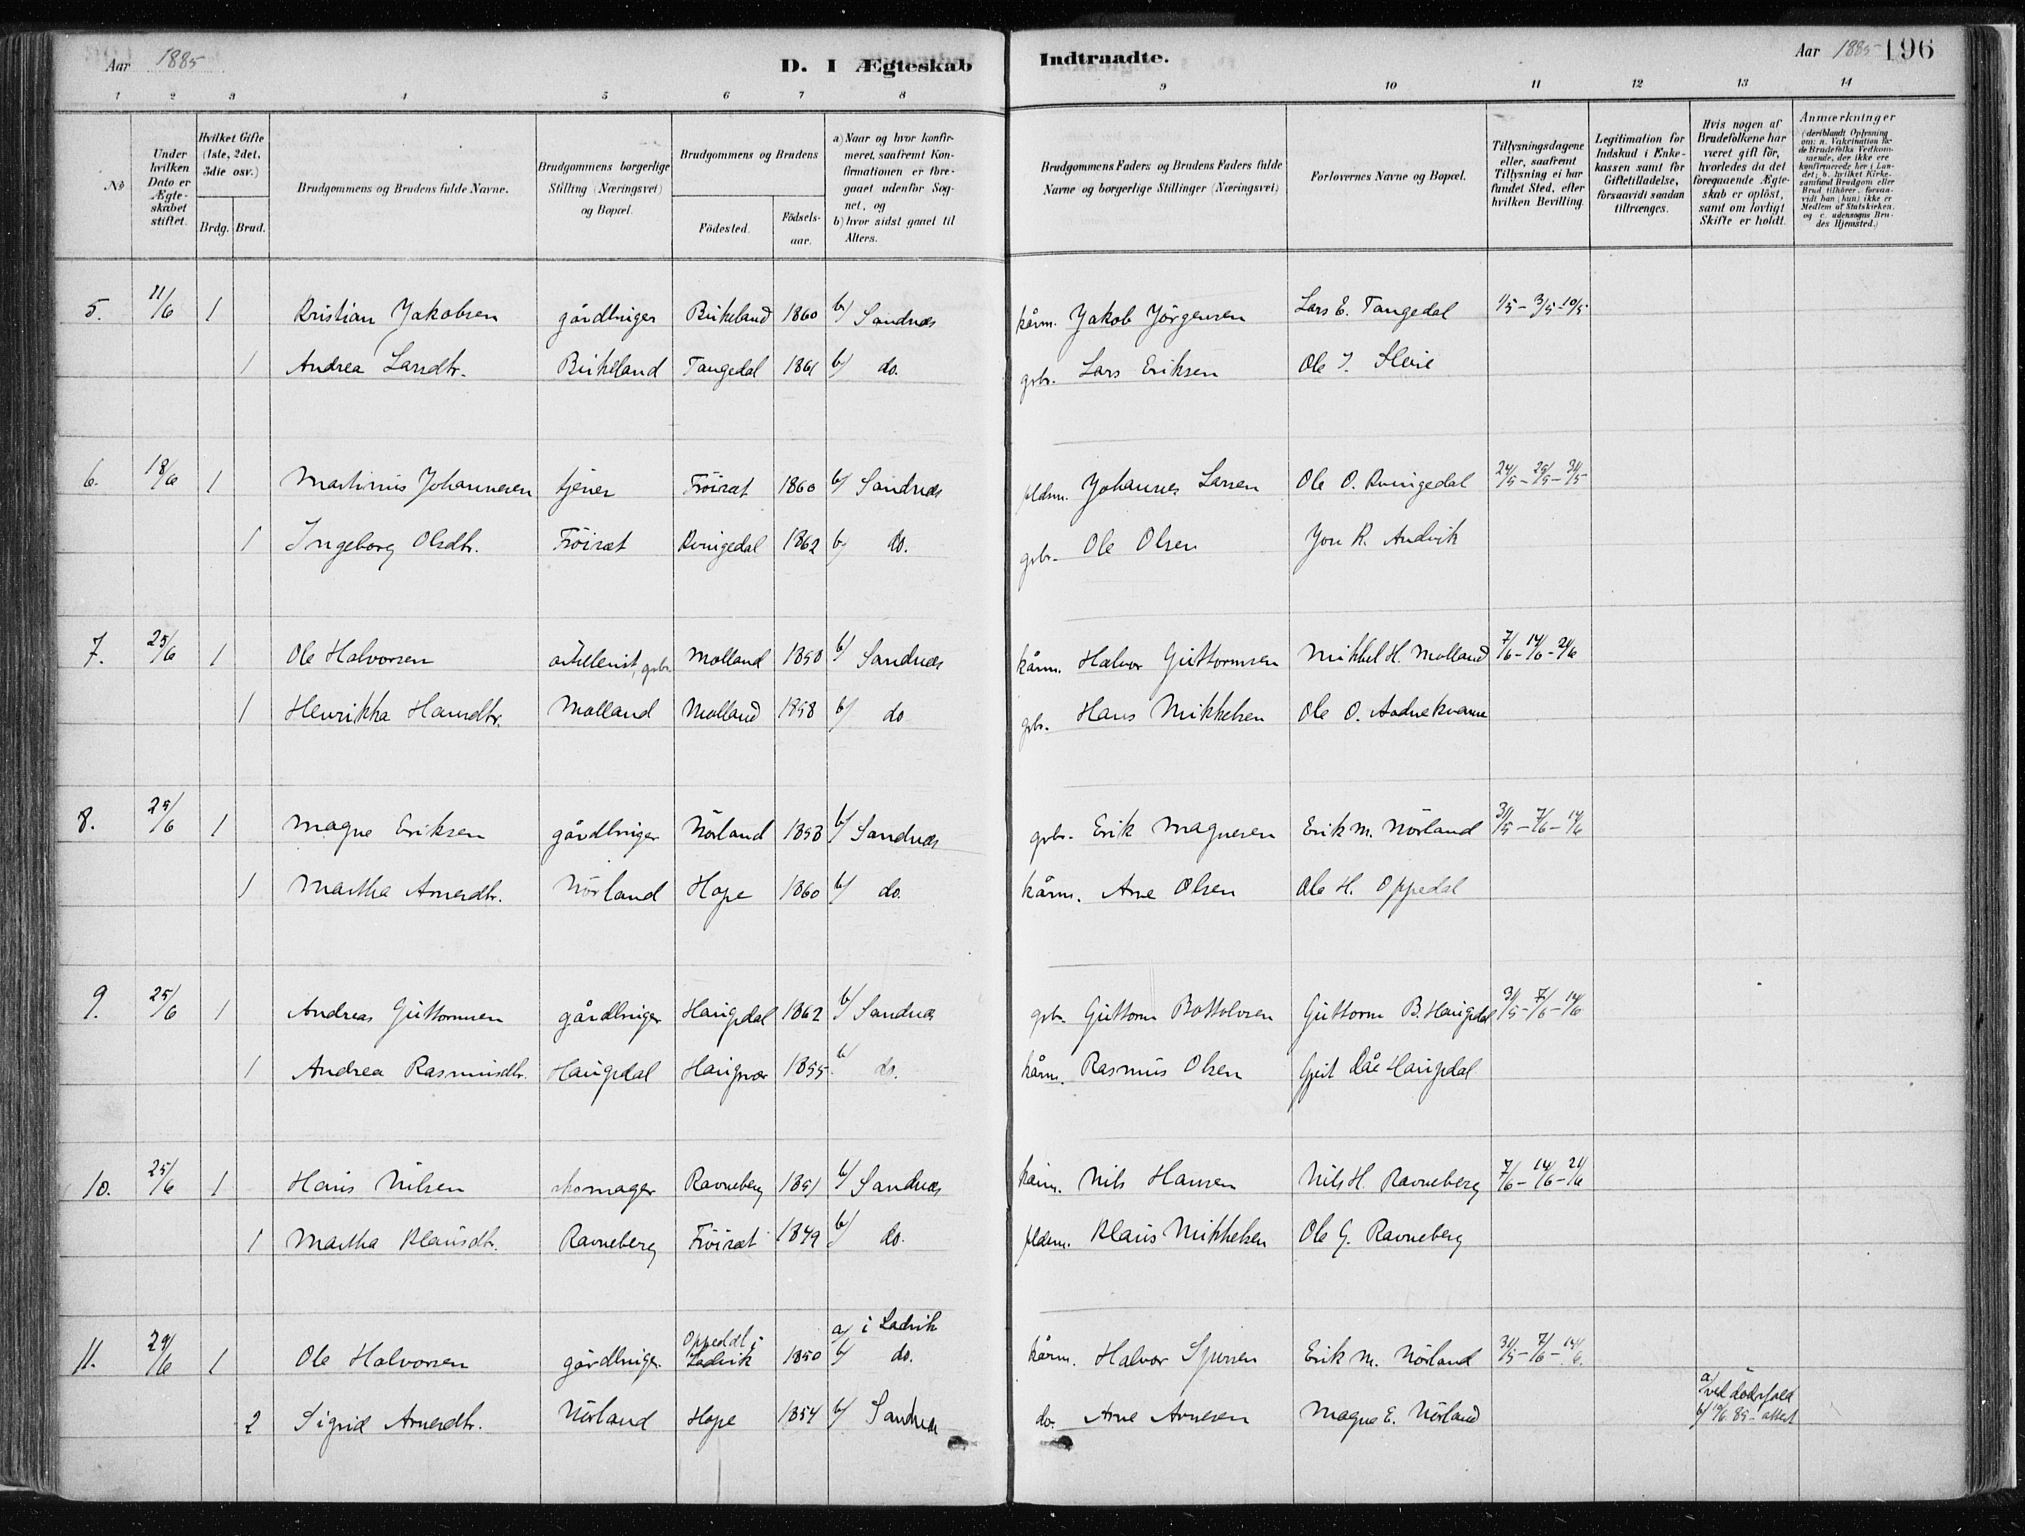 Aar 1885
D. I Ægteskab
Indtraadte.
Aar 1885
196
1 2 3 4 5 6 7 8
9 10 11 12 13 14
No
Under hvilken Dato er Ægteskabet stiftet.
Hvilket Gifte (1ste, 2det, 3die osv.)
Brdg. Brud.
Brudgommens og Brudens fulde Navne.
Brudgommens borgerlige Stilling (Næringsvei) og Bopæl.
Brudgommens og Brudens
Födested. Födselsaar.
a) Naar og hvor konfirmeret, saafremt Konfirmationen er foregaaet udenfor Sognet, og
b) hvor sidst gaaet til Alters.
Brudgommens Faders og Brudens Faders fulde Navne og borgerlige Stillinger (Næringsvei)
Forlovernes Navne og Bopæl.
Tillysningsdagene eller, saafremt Tillysning ei har fundet Sted, efter hvilken Bevilling.
Legitimation for Indskud i Enkekassen samt for Giftetilladelse, forsaavidt saadan tiltrænges.
Hvis nogen af Brudefolkene har været gift för, hvorledes da det foregaaende Ægteskab er oplöst, samt om lovligt Skifte er holdt.
Anmærkninger
(deriblandt Oplysning om: a. Vakcination for de Brudefolks Vedkommende, der ikke ere konfirmerede her i Landet; b. hvilket Kirkesamfund Brudgom eller Brud tilhörer, forsaavidt han (hun) ikke er Medlem af Statskirken, og c. udensogns Brudes Hjemsted.)
5. 11/6 1 Kristian Jakobsen gårdbruger Birkeland 1860 b/ Sandnes kårm. Jakob Jörgensen Lars E. Tangedal 1/5 - 3/5 - 10/5
1 Andrea Larsdtr. Birkeland Tangedal 1861 b/ do. gbr. Lars Eriksen Ole J. Sleire
6. 18/6 1 Martinus Johannesen tjener Fröiset 1860 b/ Sandnes pldsm. Johannes Larsen Ole O. Kvingedal 24/5 - 25/5 - 31/5
1 Ingeborg Olsdtr. Fröiset Kvingedal 1862 b/ do. gbr. Ole Olsen Jon R. Andvik
7. 25/6 1 Ole Halvorsen gbr. Molland 1858 b/ Sandnes kårm. Halvor Guttormsen Mikkel H. Molland 7/6 - 14/6 - 21/6
1 Henrikka Hansdtr. Molland Molland 1858 b/ do gbr. Hans Mikkelsen Ole O. Andnekvamme
8. 25/6 1 Magne Eriksen gårdbruger Nörland 1858 b/ Sandnes gbr. Erik Magnesen Erik M. Nörland 31/5 - 7/6 - 14/6
1 Martha Arnesdtr. Nörland Hope 1860 b/ do. kårm. Arne Olsen Ole H. Oppedal
9. 25/6 1 Andreas Guttormsen gårdbruger Haugsdal 1862 b/ Sandnes gbr. Guttorm Bottolvsen Guttorm B. Haugsdal 31/5 - 7/6 - 14/6
1 Andrea Rasmusdtr. Haugsdal Haugsvær 1855 b/ do. kårm. Rasmus Olsen Gjert Dåe Haugsdal
10. 25/6 1 Hans Nilsen skomager Ravneberg 1851 b/ Sandnes kårm. Nils Hansen Nils H. Ravneberg 7/6 - 14/6 - 21/6
1 Martha Klausdtr. Ravneberg Fröiset 1849 b/ do. pldsm. Klaus Mikkelsen Ole G. Ravneberg
11. 29/6 1 Ole Halvorsen gårdbruger. Oppedal i Ladvik 1850 a/ i Ladvik b/ do. kårm. Halvor Sjursen Erik M. Nörland 31/5 - 7/6 - 14/6.
2 Sigrid Arnesdtr. Nörland Hope 1854 b/ Sandnes do. Arne Arnesen Magne E. Nörland a/ ved dödsfald b/ 10/6 85 - attest